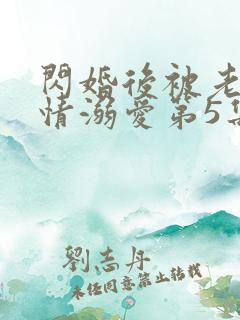 閃婚後被老
情溺愛第5集
劉志丹
未经同意禁止转载